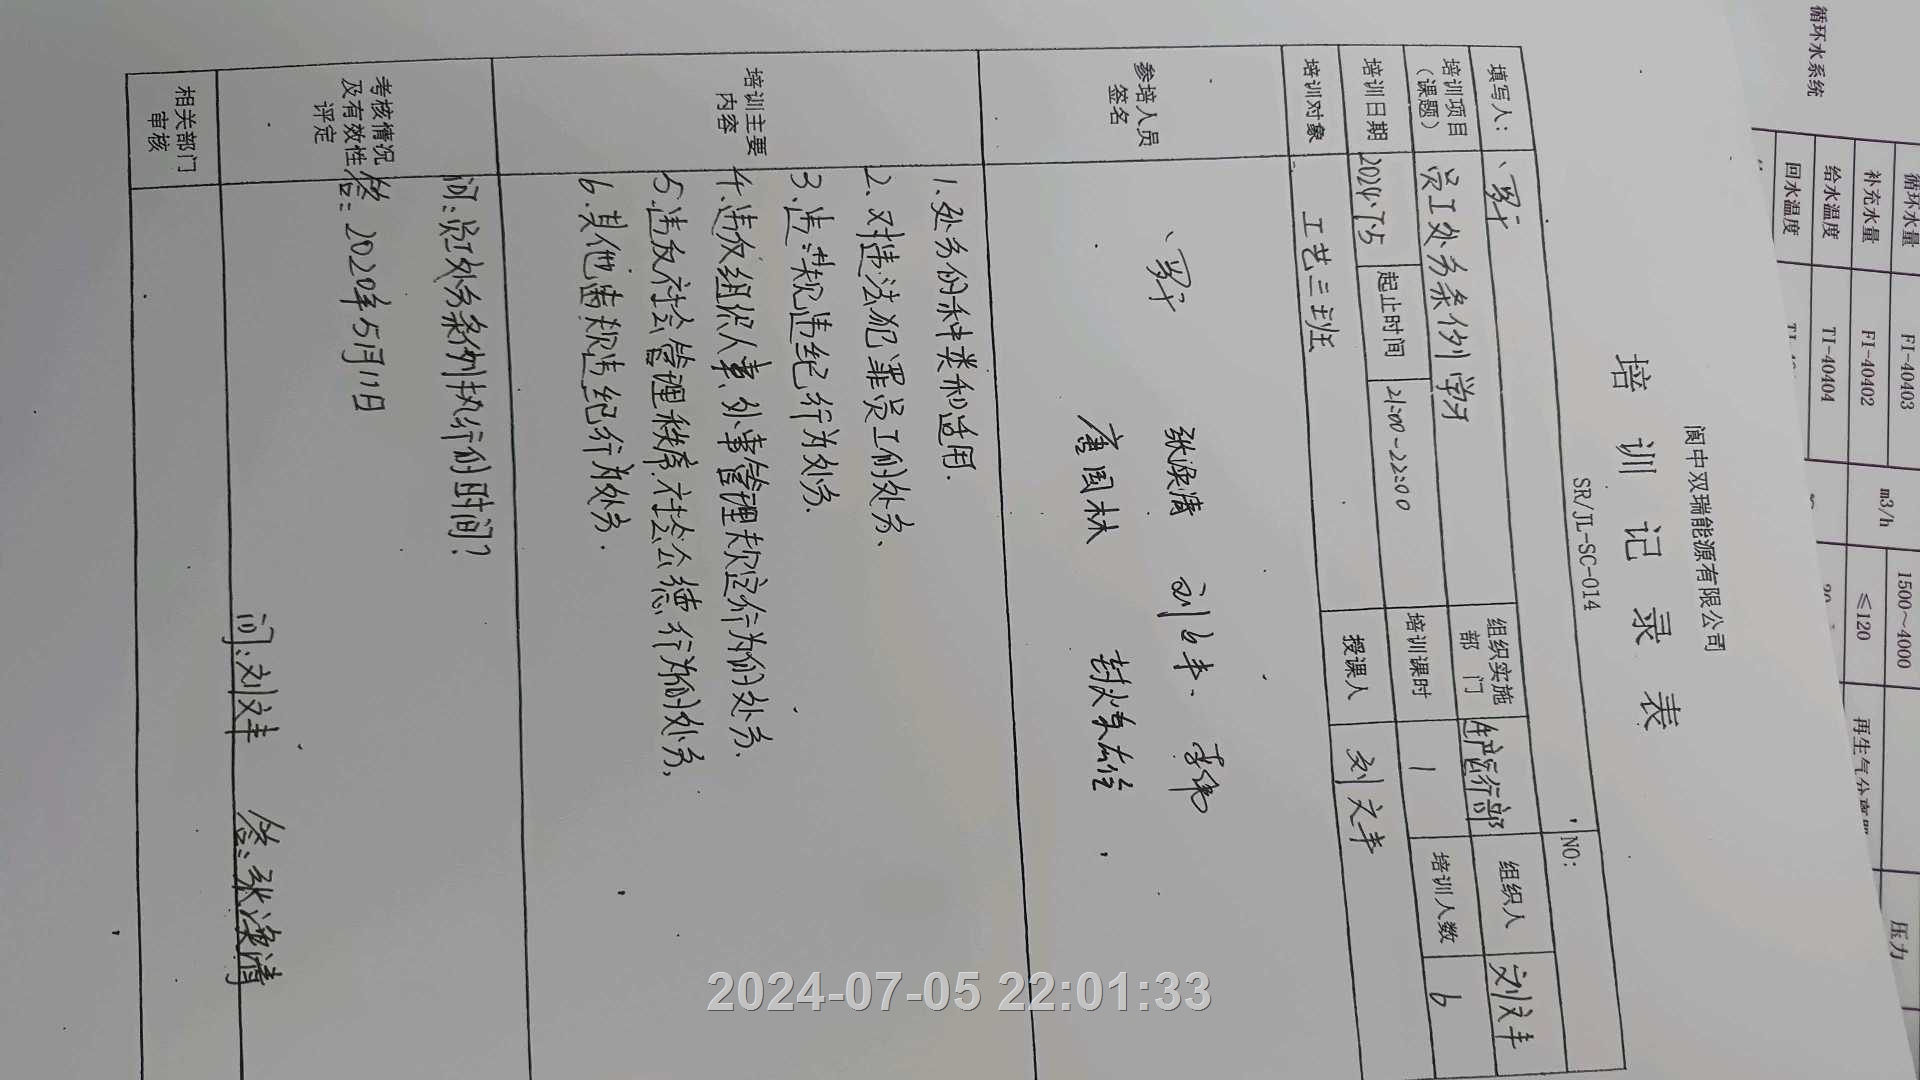 阆中双瑞能源有限公司
培训记录表
SR/JL-SC-014
NO:
填写人：
组织实施部门 生产运行部 组织人 刘文丰
培训项目（课题） 员工处分条例学习
培训课时 1 培训人数 6
培训日期 2024.7.5 起止时间 21:00~22:00
培训对象 工艺三班 授课人 刘文丰
参培人员签名
张焕清 刘文丰 李
唐国林
培训主要内容
1.处分的种类和适用.
2.对违法犯罪员工的处分、
3.违规违纪行为处分.
4.违反组织人事、外事管理规定行为的处分.
5.违反社会管理秩序.社会公德行为的处分.
6.其他违规违纪行为处分.
考核情况及有效性评定
问:员工处分条例执行的时间?
答:2020年5月11日
问:刘文丰 答:张焕清
相关部门审核
循环水系统
循环水量 FI-40403 m3/h 1500~4000
补充水量 FI-40402 ≤120
给水温度 TI-40404
回水温度
再生气分离器
压力
2024-07-05 22:01:33